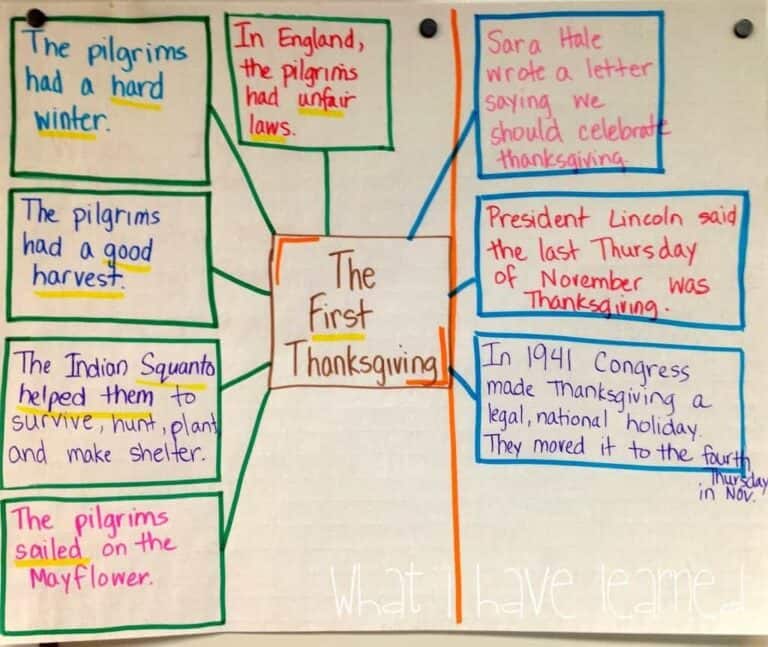 The pilgrims
had a hard
winter.
In England,
the pilgrims
had unfair
laws.
Sara Hale
wrote a letter
saying we
should celebrate
thanksgiving.
The pilgrims
had a good
harvest.
The
First
Thanksgiving
President Lincoln said
the last Thursday
of November was
Thanksgiving.
The Indian Squanto
helped them to
survive, hunt, plant
and make shelter.
In 1941 Congress
made Thanksgiving a
legal, national holiday.
They moved it to the fourth
Thursday
in Nov.
The pilgrims
sailed on the
Mayflower.
What I have learned